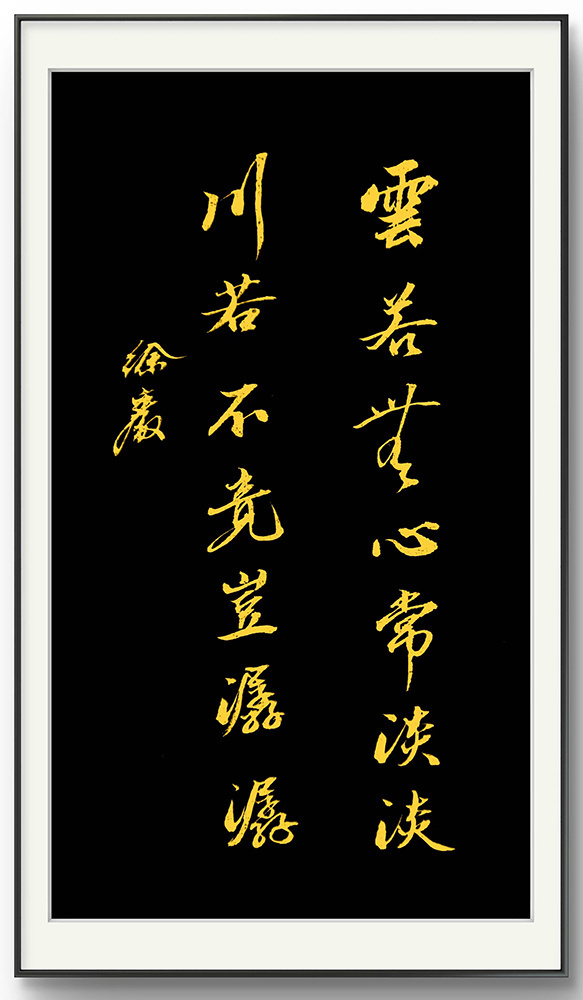 雲若無心常淡淡
川若不竞豈潺潺
徐